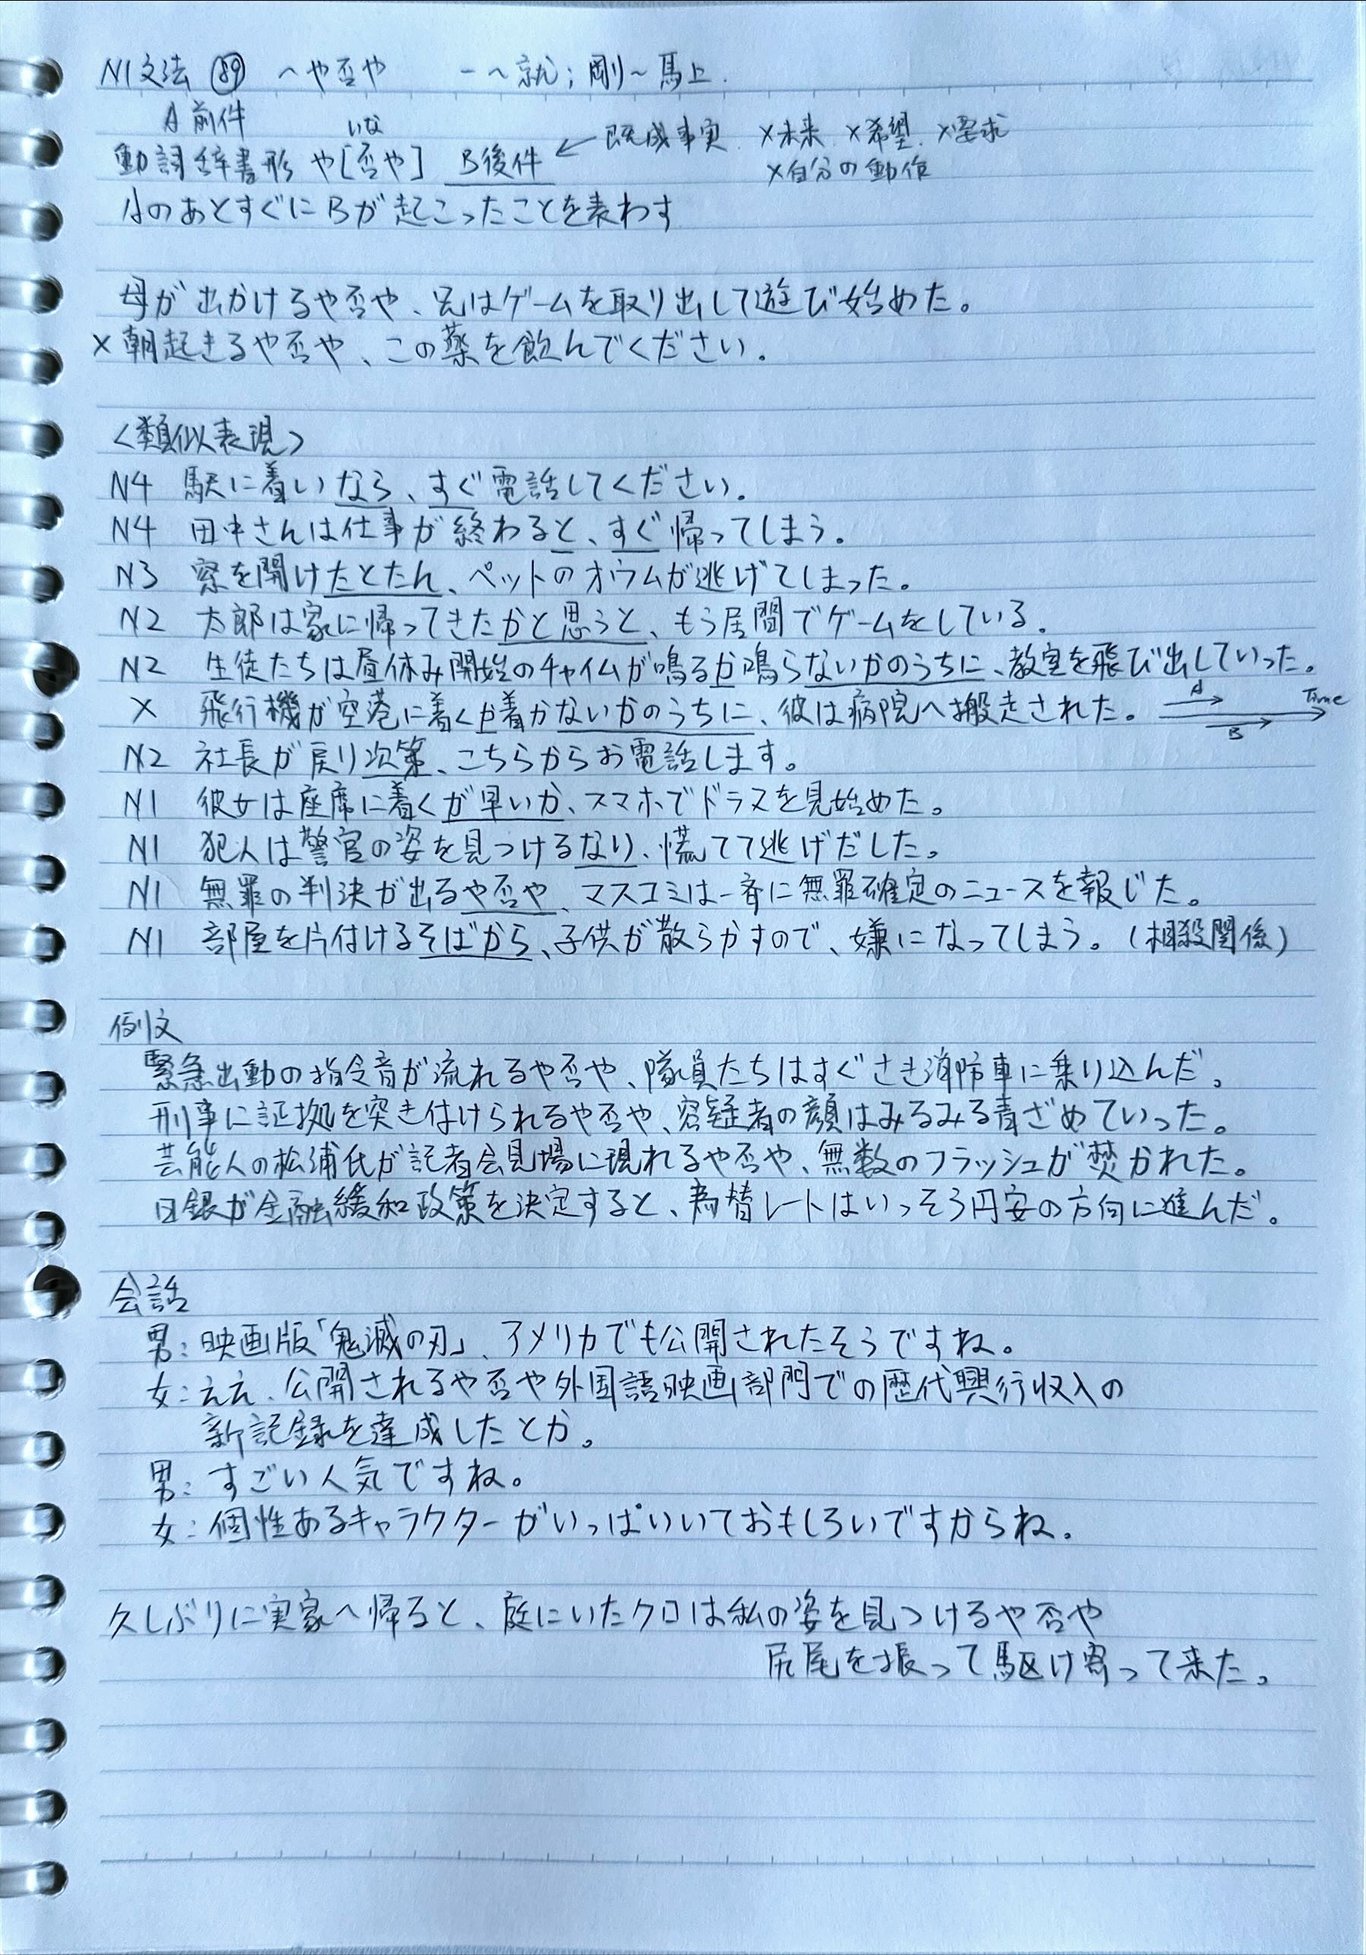 N1文法 89 〜や否や 一〜就；剛〜馬上.
A前件 いな
動詞辞書形 や[否や] B後件 ← 既成事実 ×未来 ×希望 ×要求
×自分の動作
Aのあとすぐに Bが起こったことを表わす
母が出かけるや否や、兄はゲームを取り出して遊び始めた。
×朝起きるや否や、この薬を飲んでください。
＜類似表現＞
N4 駅に着いなら、すぐ電話してください。
N4 田中さんは仕事が終わると、すぐ帰ってしまう。
N3 窓を開けたとたん、ペットのオウムが逃げてしまった。
N2 太郎は家に帰ってきたかと思うと、もう居間でゲームをしている。
N2 生徒たちは昼休み開始のチャイムが鳴るか鳴らないかのうちに、教室を飛び出していった。
× 飛行機が空港に着くか着かないかのうちに、彼は病院へ搬走された。 A B Time
N2 社長が戻り次第、こちらからお電話します。
N1 彼女は座席に着くが早いか、スマホでドラスを見始めた。
N1 犯人は警官の姿を見つけるなり、慌てて逃げだした。
N1 無罪の判決が出るや否や、マスコミは一斉に無罪確定のニュースを報じた。
N1 部屋を片付けるそばから、子供が散らかすので、嫌になってしまう。（相殺関係）
例文
緊急出動の指令音が流れるや否や、隊員たちはすぐさき消防車に乗り込んだ。
刑事に証拠を突き付けられるや否や、容疑者の顔はみるみる青ざめていった。
芸能人の松浦氏が記者会見場に現れるや否や、無数のフラッシュが焚かれた。
日銀が金融緩和政策を決定すると、為替レートはいっそう円安の方向に進んだ。
会話
男：映画版「鬼滅の刃」、アメリカでも公開されたそうですね。
女：ええ、公開されるや否や外国語映画部門での歴代興行収入の
新記録を達成したとか。
男：すごい人気ですね。
女：個性あるキャラクターがいっぱいいておもしろいですからね。
久しぶりに実家へ帰ると、庭にいたクロは私の姿を見つけるや否や
尻尾を振って駆け寄って来た。